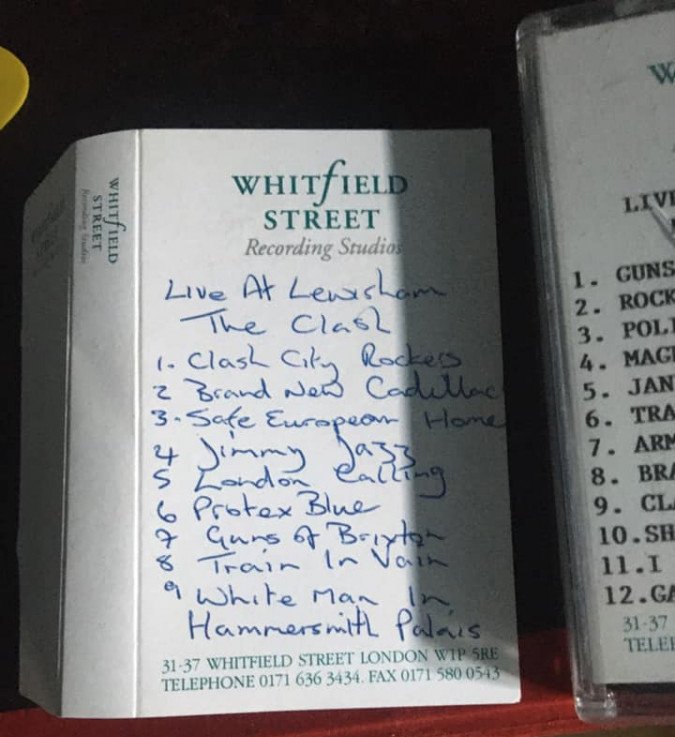 WHITFIELD
STREET
Recording Studios
WHITFIELD
STREET
Recording Studios
Live At Lewisham
The Clash
1. Clash City Rockers
2 Brand New Cadillac
3. Safe European Home
4 Jimmy Jazz
5 London Calling
6 Protex Blue
7 Guns of Brixton
8 Train In Vain
9 White Man In
Hammersmith Palais
31-37 WHITFIELD STREET LONDON W1P 5RE
TELEPHONE 0171 636 3434. FAX 0171 580 0543
W
LIVE
1. GUNS
2. ROCK
3. POLI
4. MAG
5. JAN
6. TRA
7. ARM
8. BRA
9. CLA
10.SH
11.I
12.GA
31-37
TELE